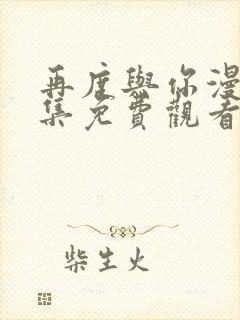 再度與你漫
集免費觀看
柴生火